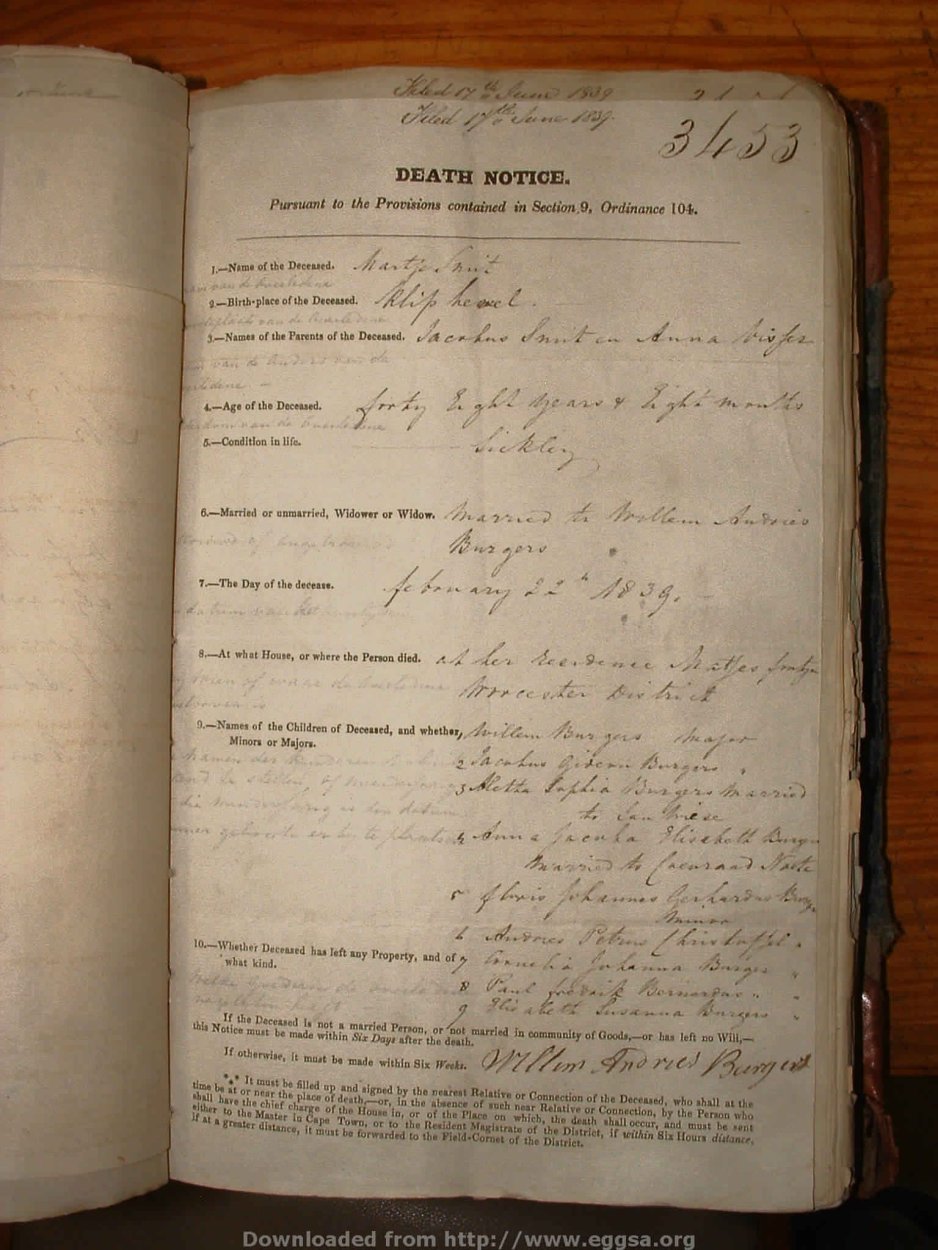 Filed 17th June 1839
Filed 17th June 1839.
3453
DEATH NOTICE.
Pursuant to the Provisions contained in Section 9, Ordinance 104.
1.—Name of the Deceased. Martje Smit
van de Overledene
2.—Birth-place of the Deceased. Klip hewel
van de Overledene
3.—Names of the Parents of the Deceased. Jacobus Smit en Anna Visser
van de Ouders van de
4.—Age of the Deceased. forty Eight Years & Eight months
van de Overledene
5.—Condition in life. Sickley
6.—Married or unmarried, Widower or Widow. Married to Willem Andries
Burgers
7.—The Day of the decease. february 22d 1839.
datum van het
8.—At what House, or where the Person died. at her residence Matjes fontyn
Worcester District
9.—Names of the Children of Deceased, and whether, Willem Burgers Major
Minors or Majors.
2 Jacobus Gideon Burgers "
3 Aletta Sophia Burgers Married
to Jan Wiese
4 Anna Jacoba Elisabeth Burgers
Married to Coenraad Nolte
5 floris Johannes Gerhardus Burgers
Minor
6 Andries Petrus Christoffel "
10.—Whether Deceased has left any Property, and of 7 Cornelia Johanna Burgers "
what kind.
8 Paul fredrik Bernardus " "
9 Elisabeth Susanna Burgers "
If the Deceased is not a married Person, or not married in community of Goods,—or has left no Will,—
this Notice must be made within Six Days after the death.
If otherwise, it must be made within Six Weeks. Wellem Andries Burgers
*** It must be filled up and signed by the nearest Relative or Connection of the Deceased, who shall at the
time be at or near the place of death,—or, in the absence of such near Relative or Connection, by the Person who
shall have the chief charge of the House in, or of the Place on which, the death shall occur, and must be sent
either to the Master in Cape Town, or to the Resident Magistrate of the District, if within Six Hours distance,
if at a greater distance, it must be forwarded to the Field-Cornet of the District.
Downloaded from http://www.eggsa.org